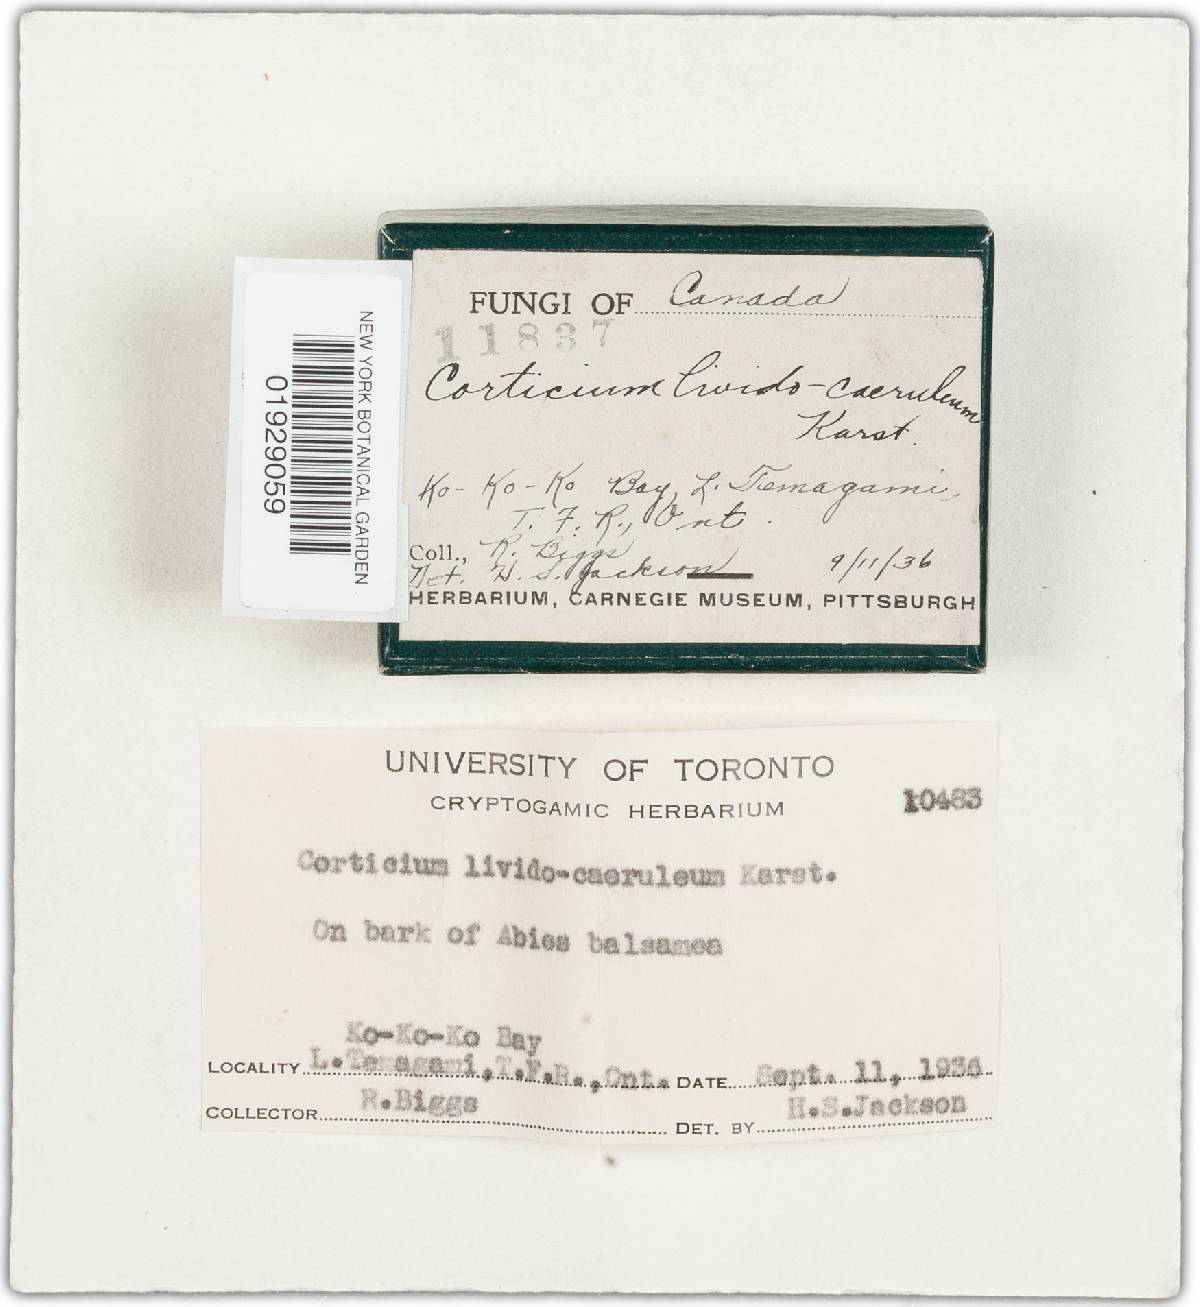 FUNGI OF Canada
11837
Corticium livido-caeruleum
Karst.
Ko-Ko-Ko Bay, L. Temagami,
T. F. R., Ont.
Coll., R. Biggs
Det. H. S. Jackson 9/11/36
HERBARIUM, CARNEGIE MUSEUM, PITTSBURGH
NEW YORK BOTANICAL GARDEN
01929059
UNIVERSITY OF TORONTO
CRYPTOGAMIC HERBARIUM
10483
Corticium livido-caeruleum Karst.
On bark of Abies balsamea
Ko-Ko-Ko Bay
LOCALITY L.Temagami,T.F.R.,Ont. DATE Sept. 11, 1936
COLLECTOR R.Biggs DET. BY H.S.Jackson